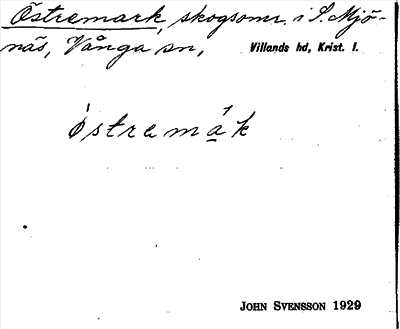 Östremark, skogsomr. i S. Mjö-
näs, Vånga sn, Villands hd, Krist. l.
östremák
JOHN SVENSSON 1929